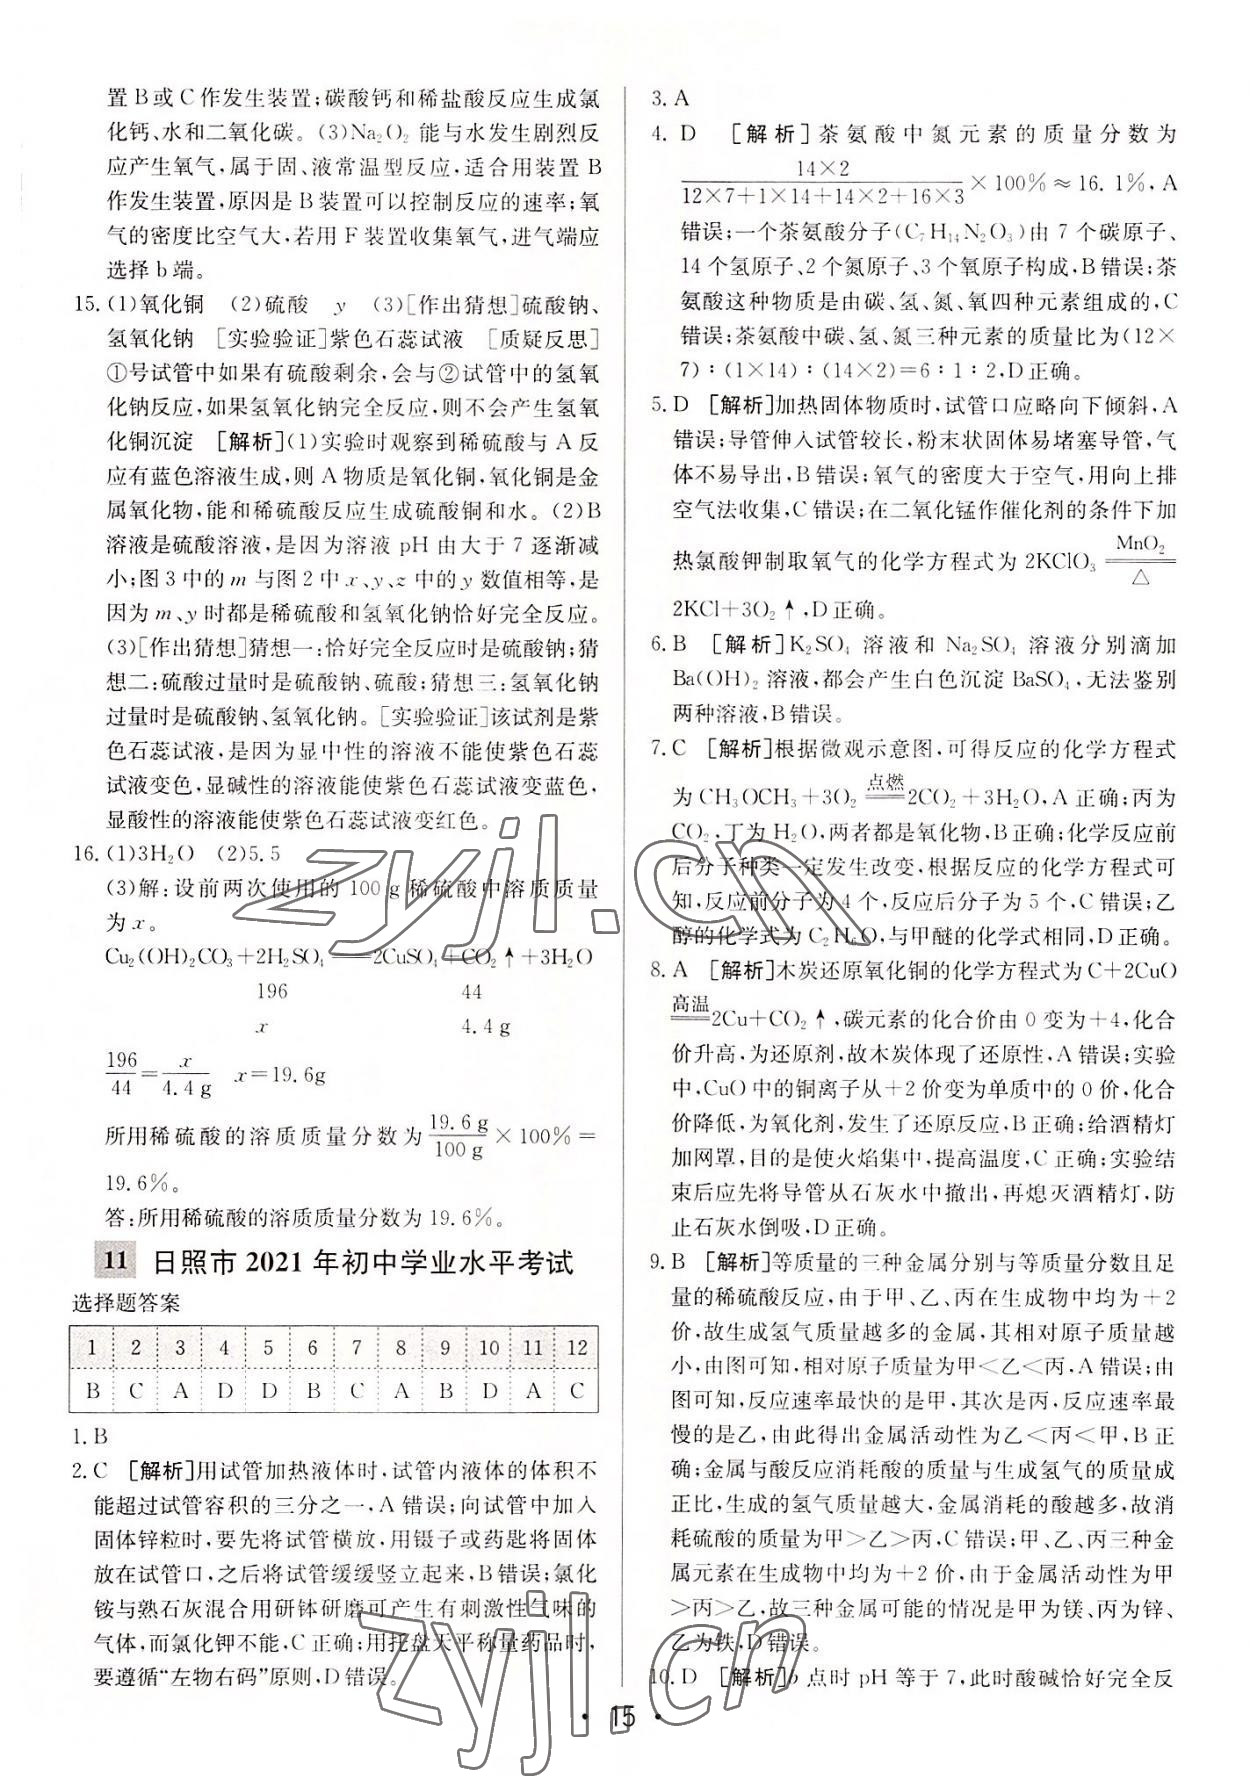 置B或C作发生装置;碳酸钙和稀盐酸反应生成氯
化钙、水和二氧化碳。(3)Na₂O₂ 能与水发生剧烈反
应产生氧气,属于固、液常温型反应,适合用装置 B
作发生装置,原因是 B装置可以控制反应的速率;氧
气的密度比空气大,若用 F 装置收集氧气,进气端应
选择b端。
15.(1)氧化铜 (2)硫酸 y (3)[作出猜想]硫酸钠、
氢氧化钠 [实验验证]紫色石蕊试液 [质疑反思]
①号试管中如果有硫酸剩余,会与②试管中的氢氧
化钠反应,如果氢氧化钠完全反应,则不会产生氢氧
化铜沉淀 [解析](1)实验时观察到稀硫酸与 A 反
应有蓝色溶液生成,则 A物质是氧化铜,氧化铜是金
属氧化物,能和稀硫酸反应生成硫酸铜和水。(2)B
溶液是硫酸溶液,是因为溶液 pH 由大于 7 逐渐减
小;图 3 中的 m 与图 2 中 x、y、z 中的 y 数值相等,是
因为 m、y 时都是稀硫酸和氢氧化钠恰好完全反应。
(3)[作出猜想]猜想一:恰好完全反应时是硫酸钠;猜
想二:硫酸过量时是硫酸钠、硫酸;猜想三:氢氧化钠
过量时是硫酸钠、氢氧化钠。[实验验证]该试剂是紫
色石蕊试液,是因为显中性的溶液不能使紫色石蕊
试液变色,显碱性的溶液能使紫色石蕊试液变蓝色,
显酸性的溶液能使紫色石蕊试液变红色。
16.(1)3H₂O (2)5.5
(3)解:设前两次使用的 100 g 稀硫酸中溶质质量
为 x。
Cu₂(OH)₂CO₃+2H₂SO₄══2CuSO₄+CO₂↑+3H₂O
196 44
x 4.4 g
196/44=x/4.4 g x=19.6g
所用稀硫酸的溶质质量分数为19.6 g/100 g×100%=
19.6%。
答:所用稀硫酸的溶质质量分数为 19.6%。
11 日照市 2021 年初中学业水平考试
选择题答案
1 2 3 4 5 6 7 8 9 10 11 12
B C A D D B C A B D A C
1.B
2.C [解析]用试管加热液体时,试管内液体的体积不
能超过试管容积的三分之一,A 错误;向试管中加入
固体锌粒时,要先将试管横放,用镊子或药匙将固体
放在试管口,之后将试管缓缓竖立起来,B错误;氯化
铵与熟石灰混合用研钵研磨可产生有刺激性气味的
气体,而氯化钾不能,C正确;用托盘天平称量药品时,
要遵循“左物右码”原则,D错误。
3.A
4.D [解析]茶氨酸中氮元素的质量分数为
14×2/12×7+1×14+14×2+16×3×100%≈16.1%,A
错误;一个茶氨酸分子(C₇H₁₄N₂O₃)由 7 个碳原子、
14个氢原子、2个氮原子、3个氧原子构成,B错误;茶
氨酸这种物质是由碳、氢、氮、氧四种元素组成的,C
错误;茶氨酸中碳、氢、氮三种元素的质量比为(12×
7):(1×14):(14×2)=6:1:2,D正确。
5.D [解析]加热固体物质时,试管口应略向下倾斜,A
错误;导管伸入试管较长,粉末状固体易堵塞导管,气
体不易导出,B错误;氧气的密度大于空气,用向上排
空气法收集,C错误;在二氧化锰作催化剂的条件下加
热氯酸钾制取氧气的化学方程式为 2KClO₃ ══MnO₂/△
2KCl+3O₂↑,D正确。
6.B [解析]K₂SO₄ 溶液和 Na₂SO₄ 溶液分别滴加
Ba(OH)₂ 溶液,都会产生白色沉淀 BaSO₄,无法鉴别
两种溶液,B错误。
7.C [解析]根据微观示意图,可得反应的化学方程式
为CH₃OCH₃+3O₂ ══点燃 2CO₂+3H₂O,A 正确;丙为
CO₂,丁为 H₂O,两者都是氧化物,B正确;化学反应前
后分子种类一定发生改变,根据反应的化学方程式可
知,反应前分子为 4 个,反应后分子为 5 个,C错误;乙
醇的化学式为 C₂H₆O,与甲醚的化学式相同,D正确。
8.A [解析]木炭还原氧化铜的化学方程式为C+2CuO
══高温 2Cu+CO₂↑,碳元素的化合价由 0 变为+4,化合
价升高,为还原剂,故木炭体现了还原性,A 错误;实验
中,CuO 中的铜离子从+2 价变为单质中的 0 价,化合
价降低,为氧化剂,发生了还原反应,B正确;给酒精灯
加网罩,目的是使火焰集中,提高温度,C 正确;实验结
束后应先将导管从石灰水中撤出,再熄灭酒精灯,防
止石灰水倒吸,D正确。
9.B [解析]等质量的三种金属分别与等质量分数且足
量的稀硫酸反应,由于甲、乙、丙在生成物中均为+2
价,故生成氢气质量越多的金属,其相对原子质量越
小,由图可知,相对原子质量为甲<乙<丙,A错误;由
图可知,反应速率最快的是甲,其次是丙,反应速率最
慢的是乙,由此得出金属活动性为乙<丙<甲,B 正
确;金属与酸反应消耗酸的质量与生成氢气的质量成
正比,生成的氢气质量越大,金属消耗的酸越多,故消
耗硫酸的质量为甲>乙>丙,C错误;甲、乙、丙三种金
属元素在生成物中均为+2 价,由于金属活动性为甲
>丙>乙,故三种金属可能的情况是甲为镁、丙为锌、
乙为铁,D错误。
10.D [解析]b 点时 pH 等于 7,此时酸碱恰好完全反
• 15 •
zyjl.cn
zyjl.cn